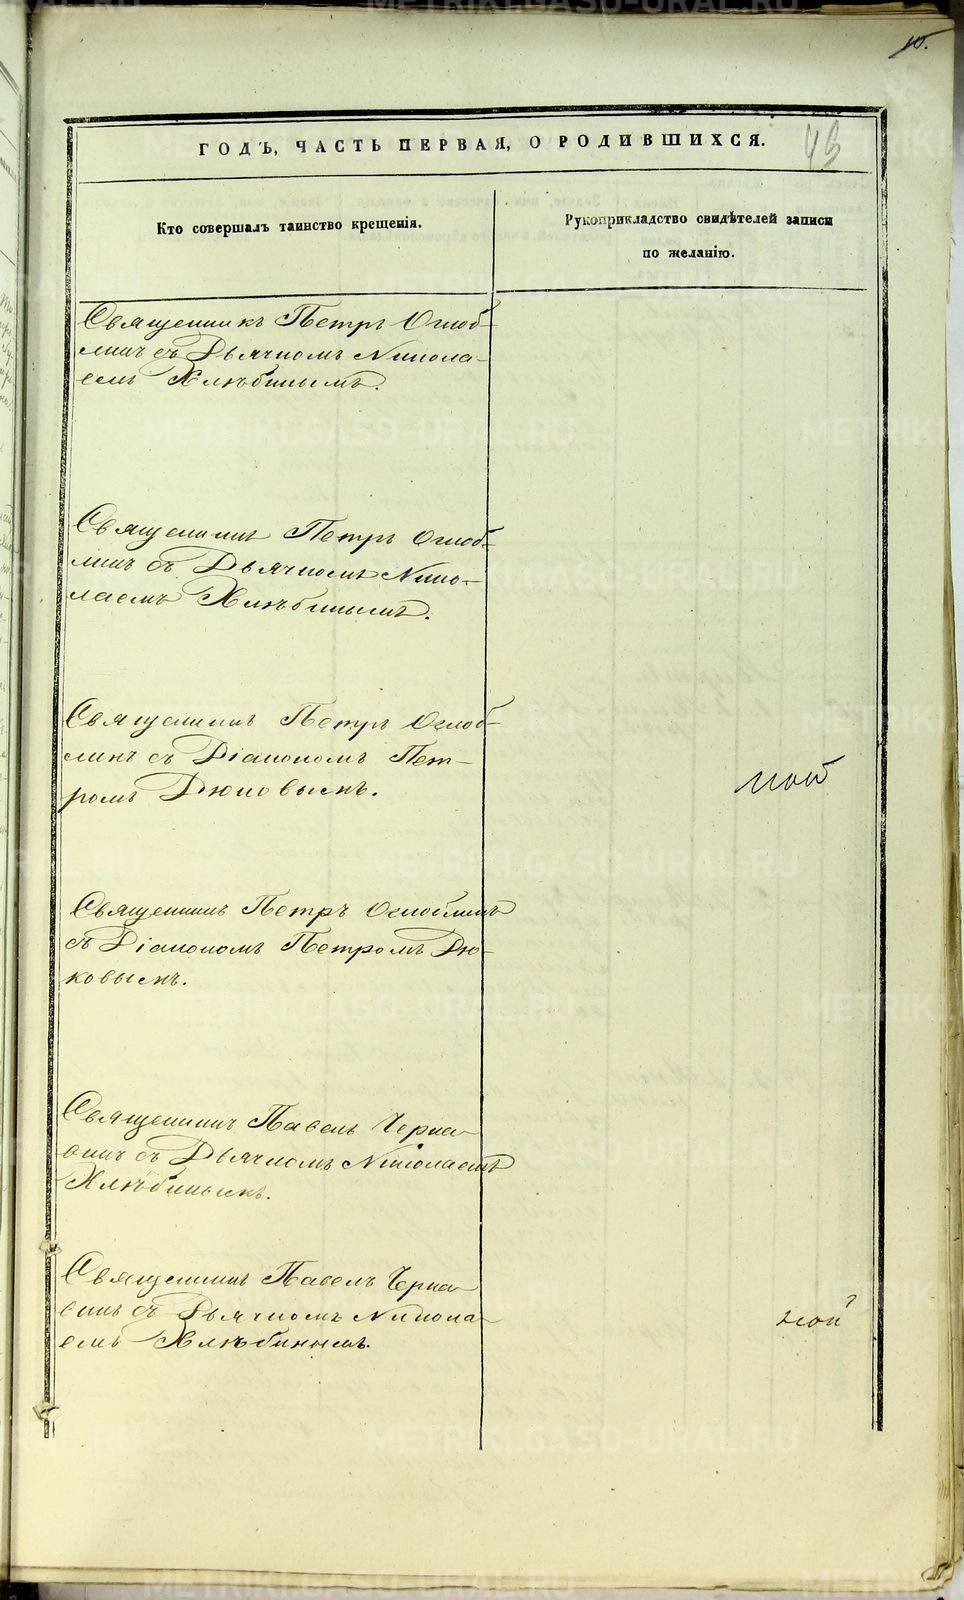 10.
ГОДЪ, ЧАСТЬ ПЕРВАЯ, О РОДИВШИХСЯ.
Кто совершалъ таинство крещенія.
Рукоприкладство свидѣтелей записи
по желанію.
Священникъ Петръ Оглоб-
линъ съ Дьячкомъ Никола-
емъ Хлѣбинымъ.
Священникъ Петръ Оглоб-
линъ съ Дьячкомъ Нико-
лаемъ Хлѣбинымъ.
Священникъ Петръ Оглоб-
линъ съ Діакономъ Пет-
ромъ Дюковымъ.
Священникъ Петръ Оглоблинъ
съ Діакономъ Петромъ Дю-
ковымъ.
Священникъ Павелъ Черна-
винъ съ Дьячкомъ Николаемъ
Хлѣбинымъ.
Священникъ Павелъ Черна-
винъ съ Дьячкомъ Никола-
емъ Хлѣбинымъ.
METRIKI.GASO-URAL.RU